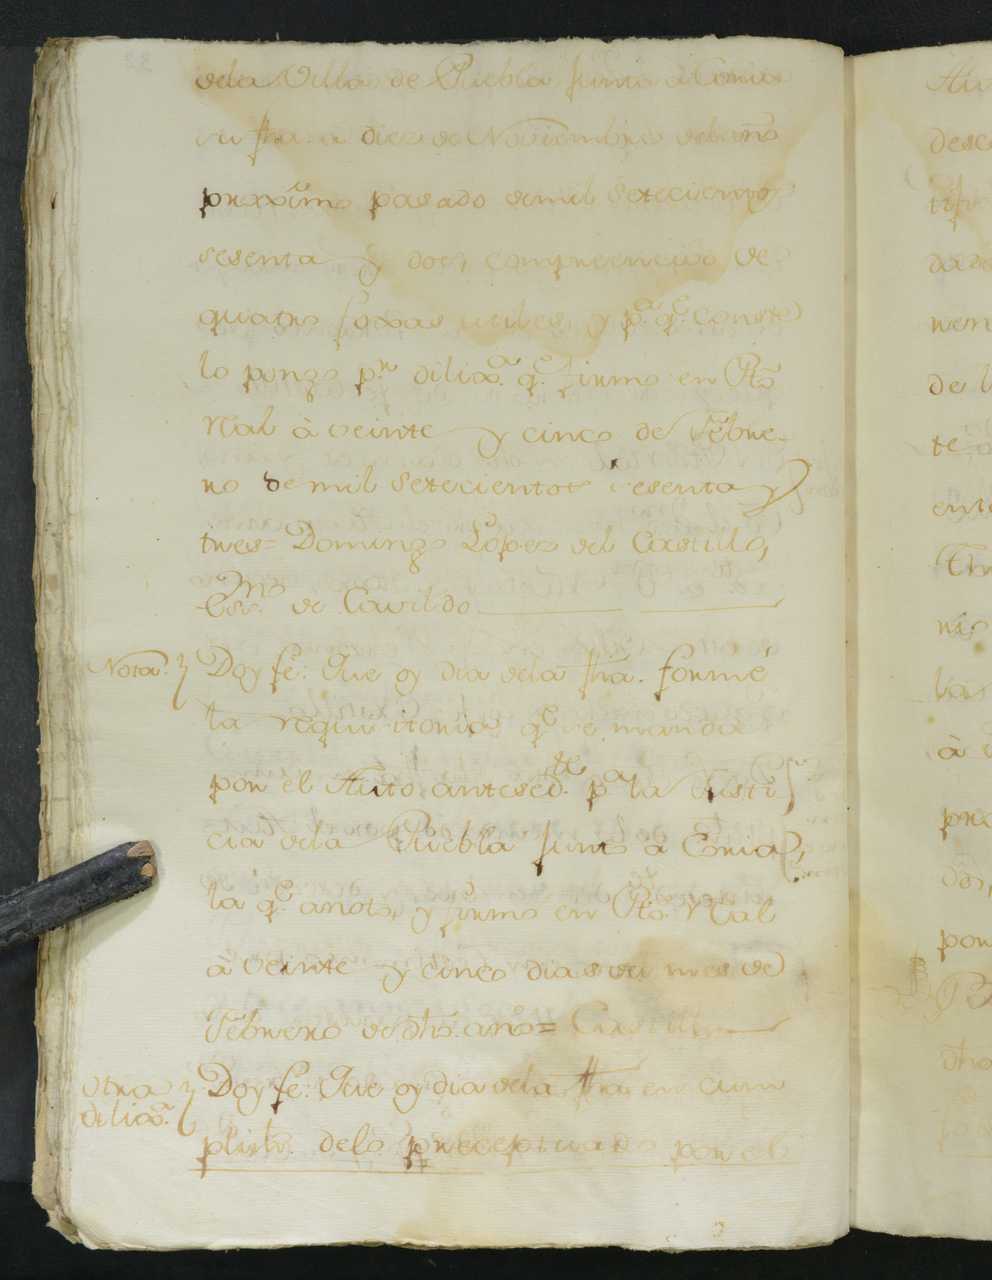 dela Villa de Puebla junto à Coria
su fha. a diez de Noviembre del año
proxximo pasado de mil setecientos
sesenta y dos, compreencivo de
quatro foxas utiles, y pa. qe. conste
lo pongo pr. dilixa. qe. firmo en Pto.
Rl. à veinte y cinco de Febre-
ro de mil setecientos sesenta y
tres = Domingo López del Castillo,
Esno. de Cavildo
Nota. Doy fe: Que oy dia dela fha. formé
la requisitoria qe. se manda
por el Auto antesedte. pa. la Justi
cia dela Puebla junto a Coria,
la qe. anoto, y firmo en Pto. Rl.
à veinte y cinco dias del mes de
Febrero de dho. año = Castillo
Otra dilixa. Doy fe: Que oy dia dela fha en cum
plimto. delo preceptuado por el
Au
desc
de l
te
ente
nis
las
por